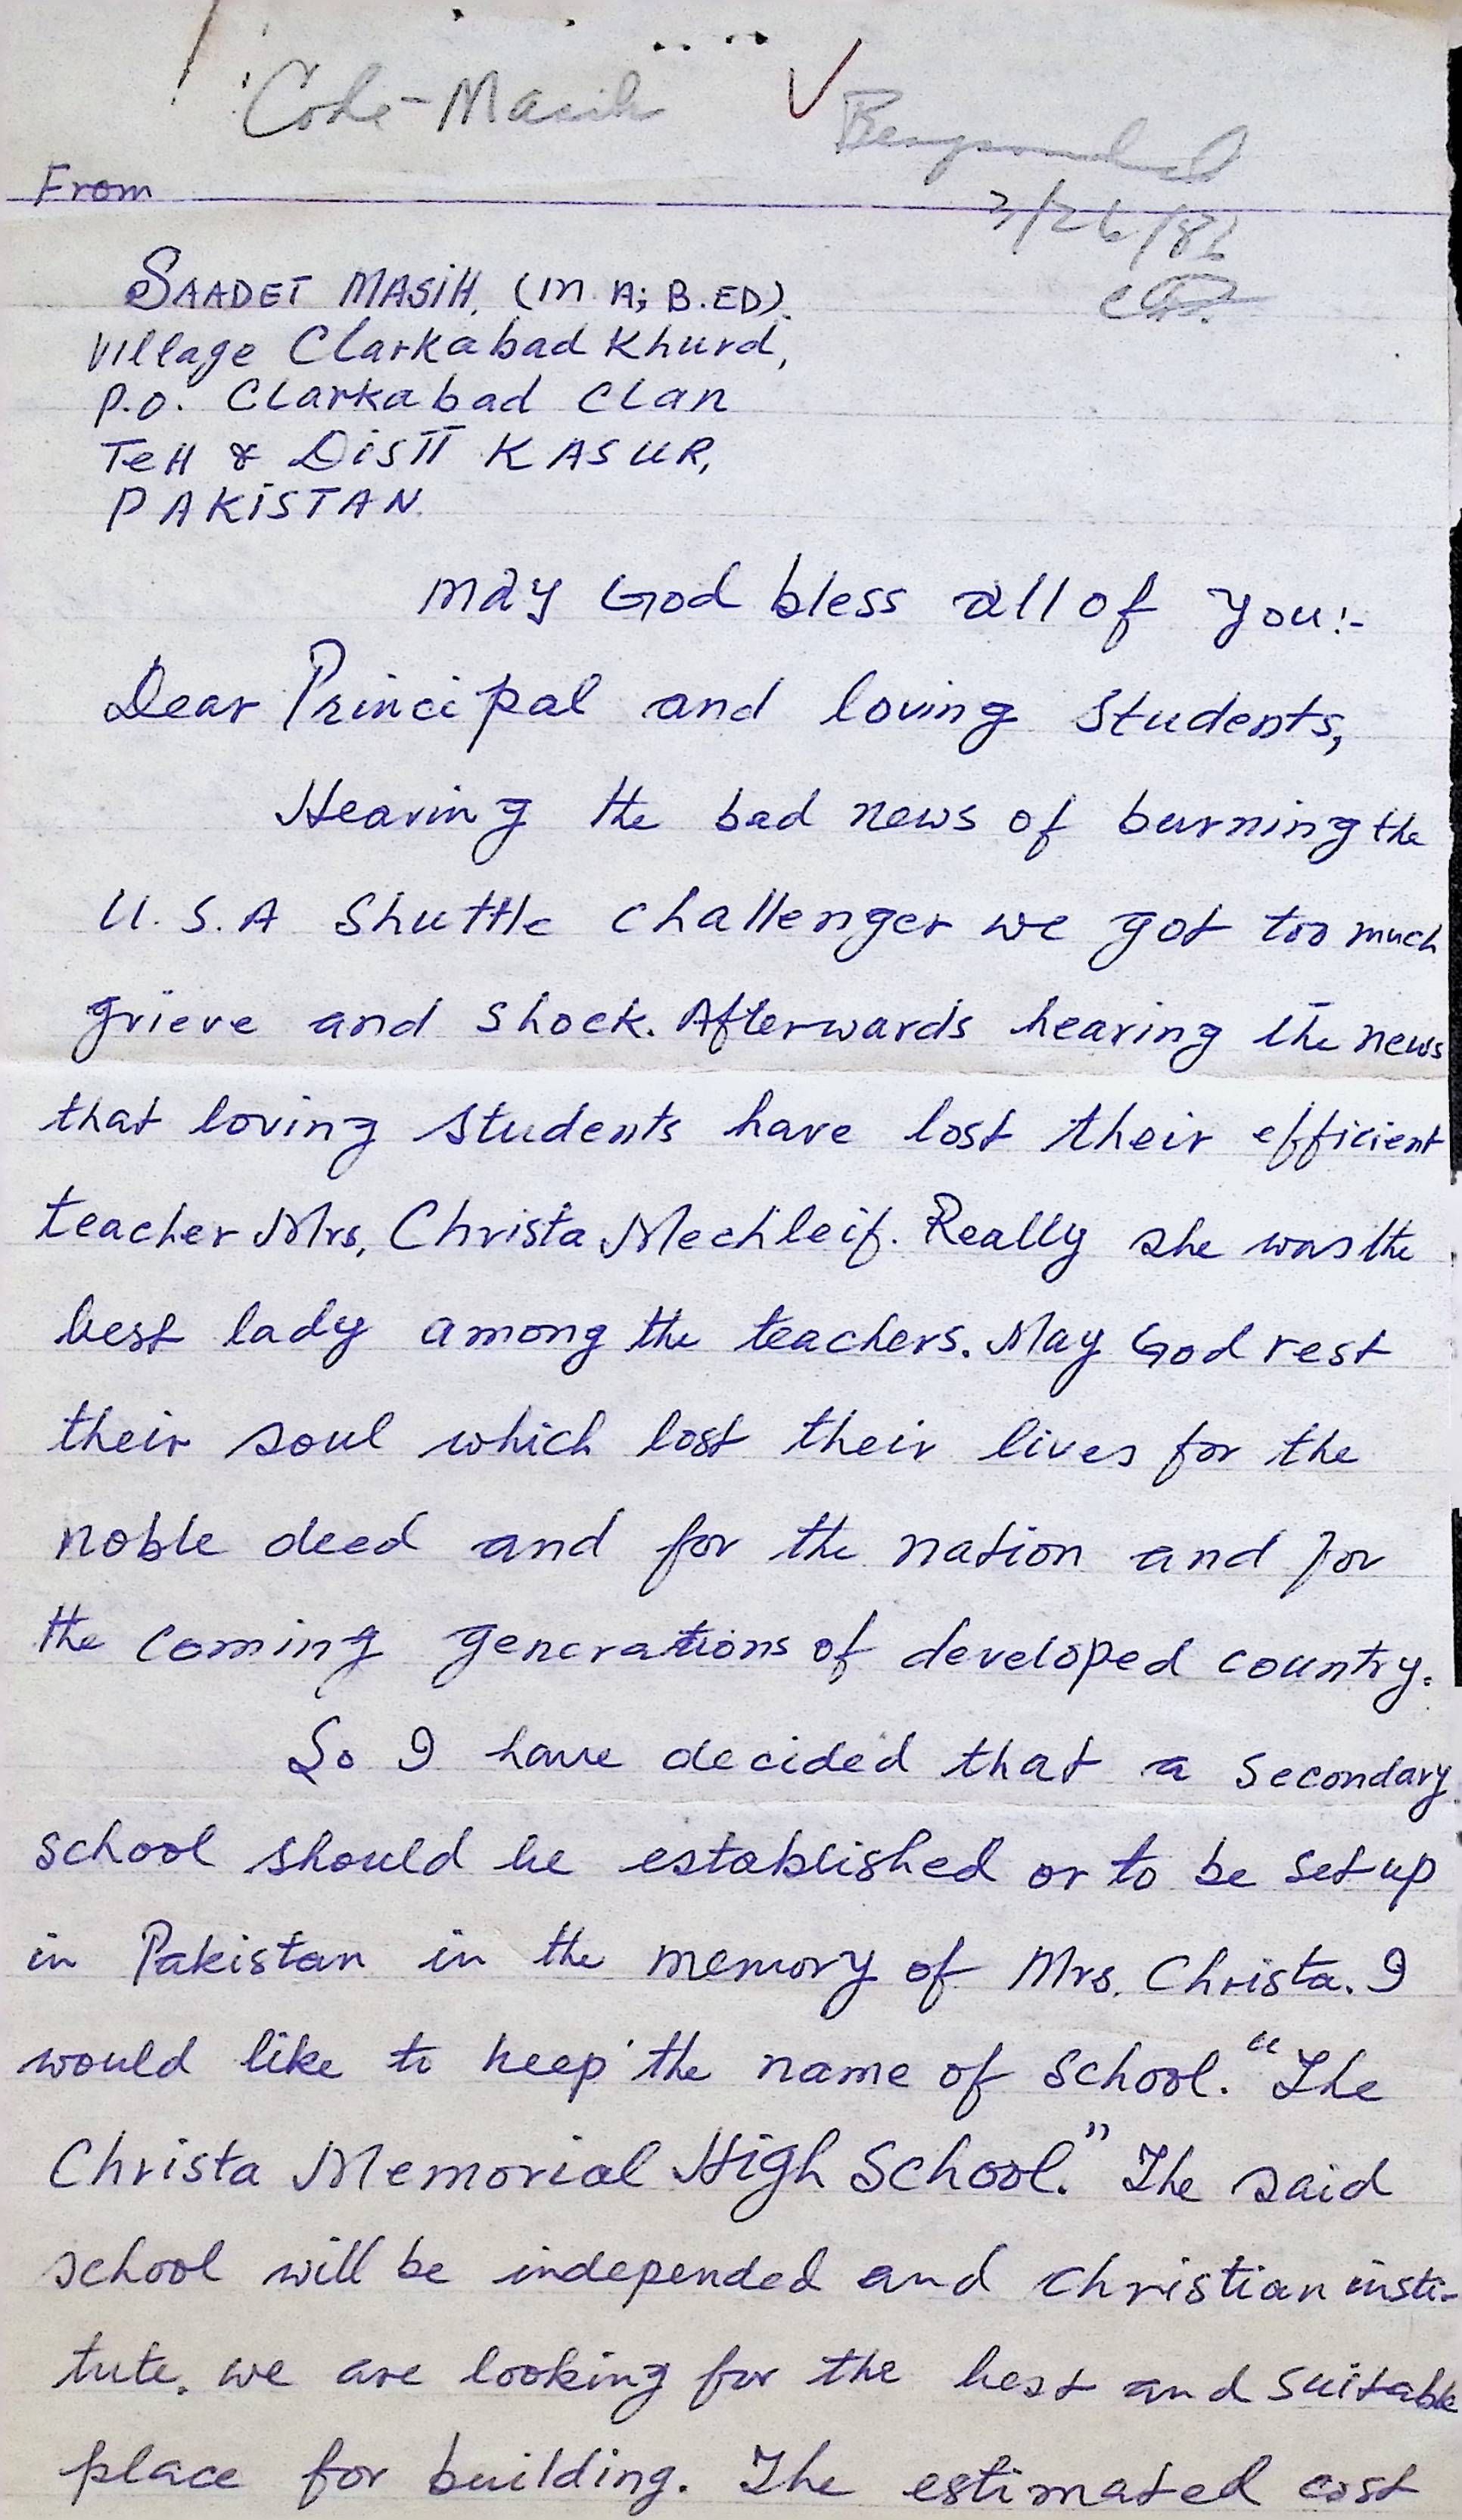 Code-Masih
Responded
3/26/86
From
SAADET MASIH, (M.A; B.ED).
Village Clarkabad Khurd,
P.O. Clarkabad Clan
TeH & DisTT KASUR,
PAKISTAN.
May God bless all of you:-
Dear Principal and loving students,
Hearing the bad news of burning the
U.S.A Shuttle Challenger we got too much
grieve and shock. Afterwards hearing the news
that loving students have lost their efficient
teacher Mrs, Christa Mechleif. Really she was the
best lady among the teachers. May God rest
their soul which lost their lives for the
noble deed and for the nation and for
the coming generations of developed country.
So I have decided that a secondary
school should be established or to be set up
in Pakistan in the memory of Mrs. Christa. I
would like to keep the name of school. "The
Christa Memorial High School." The said
school will be independed and christian insti-
tute. we are looking for the best and suitable
place for building. The estimated cost